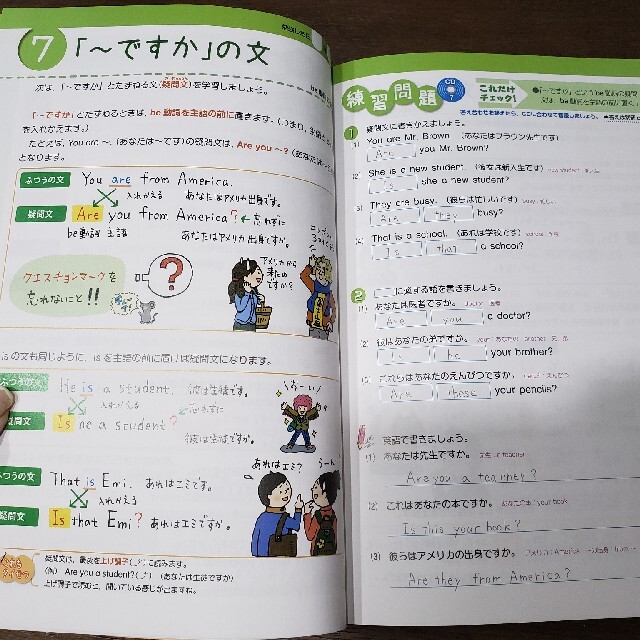 7 「～ですか」の文
次は，「～ですか」とたずねる文(疑問文)を学習しましょう。
「～ですか」とたずねるときは，be動詞を主語の前に置きます。
を入れかえます。)
たとえば，You are ～. (あなたは～です)の疑問文は，Are you ～?
となります。
ふつうの文 You are from America.
入れかえる あなたはアメリカ出身です。
疑問文 Are you from America? ← 忘れずに
be動詞 主語 あなたはアメリカ出身ですか。
アメリカから
来たの
ですか?
クエスチョンマークを
忘れないこと!!
?
is の文も同じように，is を主語の前に置けば疑問文になります。
ふつうの文 He is a student. 彼は生徒です。
入れかえる 忘れずに
疑問文 Is he a student? 彼は生徒ですか。
ふつうの文 That is Emi. あれはエミです。
入れかえる
疑問文 Is that Emi? あれはエミですか。
あれはエミ?
うーん
疑問文は，最後を上げ調子(↗)で読みます。
(例) Are you a student?(↗) (あなたは生徒ですか)
上げ調子で読むと，聞いている感じが出ますね。
練習問題
CD
7
これだけ
チェック!
1 疑問文に書きかえましょう。
(1) You are Mr. Brown. (あなたはブラウン先生です)
Are you Mr. Brown?
(2) She is a new student. (彼女は新入生です)
Is she a new student?
(3) They are busy. (彼らは忙しいです)
Are they busy?
(4) That is a school. (あれは学校です)
Is that a school?
2 に適する語を書きましょう。
(1) あなたは医者ですか。
Are you a doctor?
(2) 彼はあなたの弟ですか。
Is he your brother?
(3) これらはあなたのえんぴつですか。
Are these your pencils?
英語で書きましょう。
(1) あなたは先生ですか。 先生 a teacher
Are you a teacher?
(2) これはあなたの本ですか。 あなたの本 your book
Is this your book?
(3) 彼らはアメリカの出身ですか。
Are they from America?